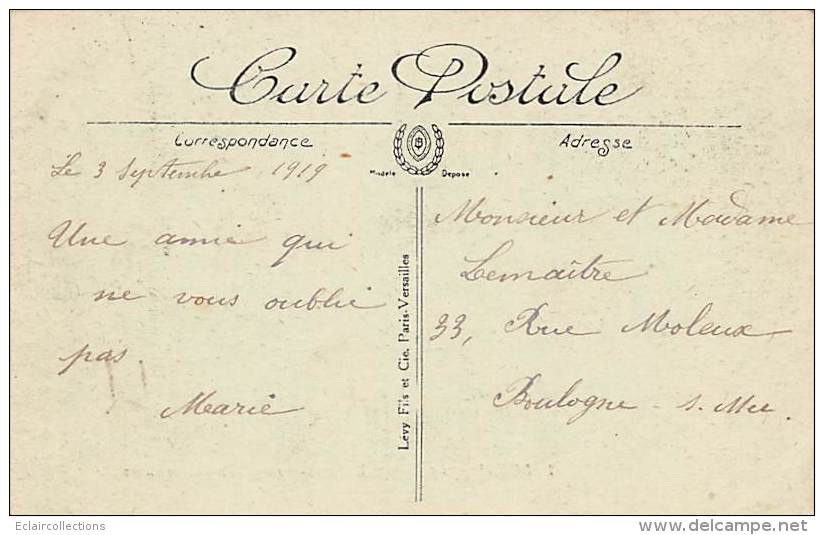 Carte Postale
Correspondance
Adresse
Modèle Déposé
Le 3 Septembre 1919
Une amie qui
ne vous oublie
pas.
Marie
Levy Fils et Cie, Paris-Versailles
Monsieur et Madame
Lemaître
33, Rue Moleux
Boulogne - s. Mer.
Eclaircollections
www.delcampe.net